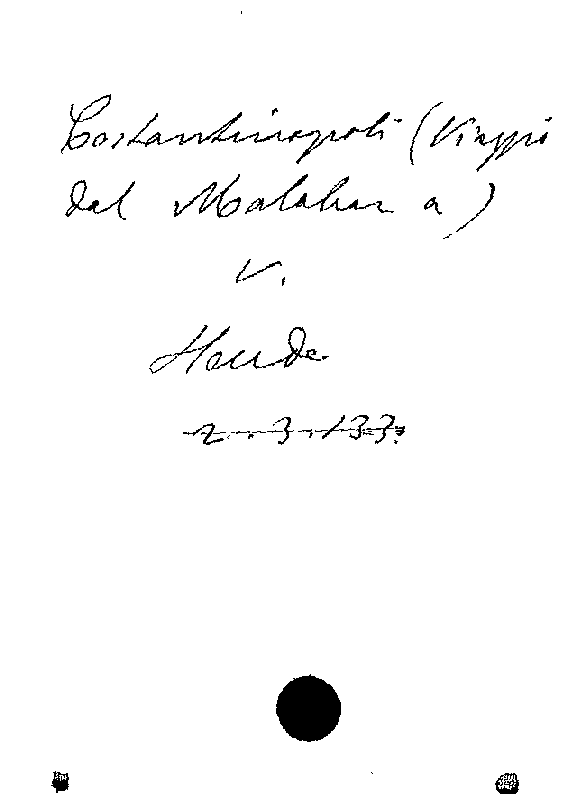 Costantinopoli (Viaggio
dal Malabar a)
V.
Heude
2. 3. 133.